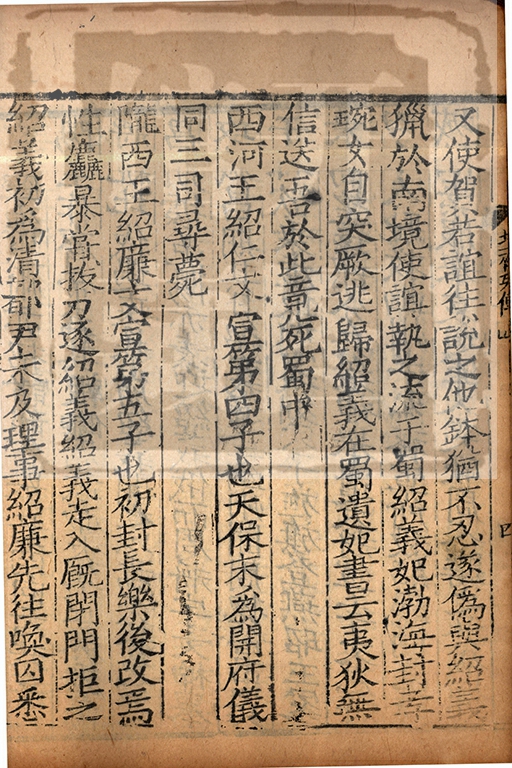 又使賀若誼往說之他鉢猶不忍遂僞與紹義
獵於南境使誼執之流于蜀紹義妃渤海封孝
琬女自突厥逃歸紹義在蜀遺妃書云夷狄無
信送吾於此竟死蜀中
西河王紹仁文宣第四子也天保末爲開府儀
同三司尋薨
隴西王紹廉文宣第五子也初封長樂後改焉
性麤暴嘗拔刀逐紹義紹義走入厩閉門拒之
紹義初爲清都尹未及理事紹廉先往喚囚悉